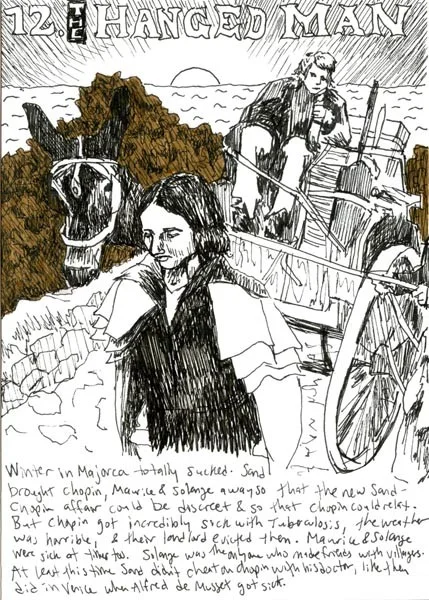 12. THE HANGED MAN
Winter in Majorca totally sucked. Sand
brought chopin, Maurice & solange away so that the new Sand-
Chopin affair could be discreet & so that chopin could relax.
But Chopin got incredibly sick with Tuberculosis, the weather
was horrible, & their landlord evicted them. Maurice & Solange
were sick at times too. Solange was the only one who made friends with villagers.
At least this time Sand didn't cheat on chopin with his doctor, like they
did in Venice when Alfred de Musset got sick.